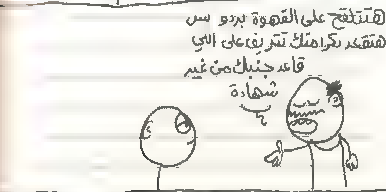 هتتلقح على القهوة بردو بس
هتقعد بكرامتك تتريف على اللي
قاعد جنبك من غير
شهادة